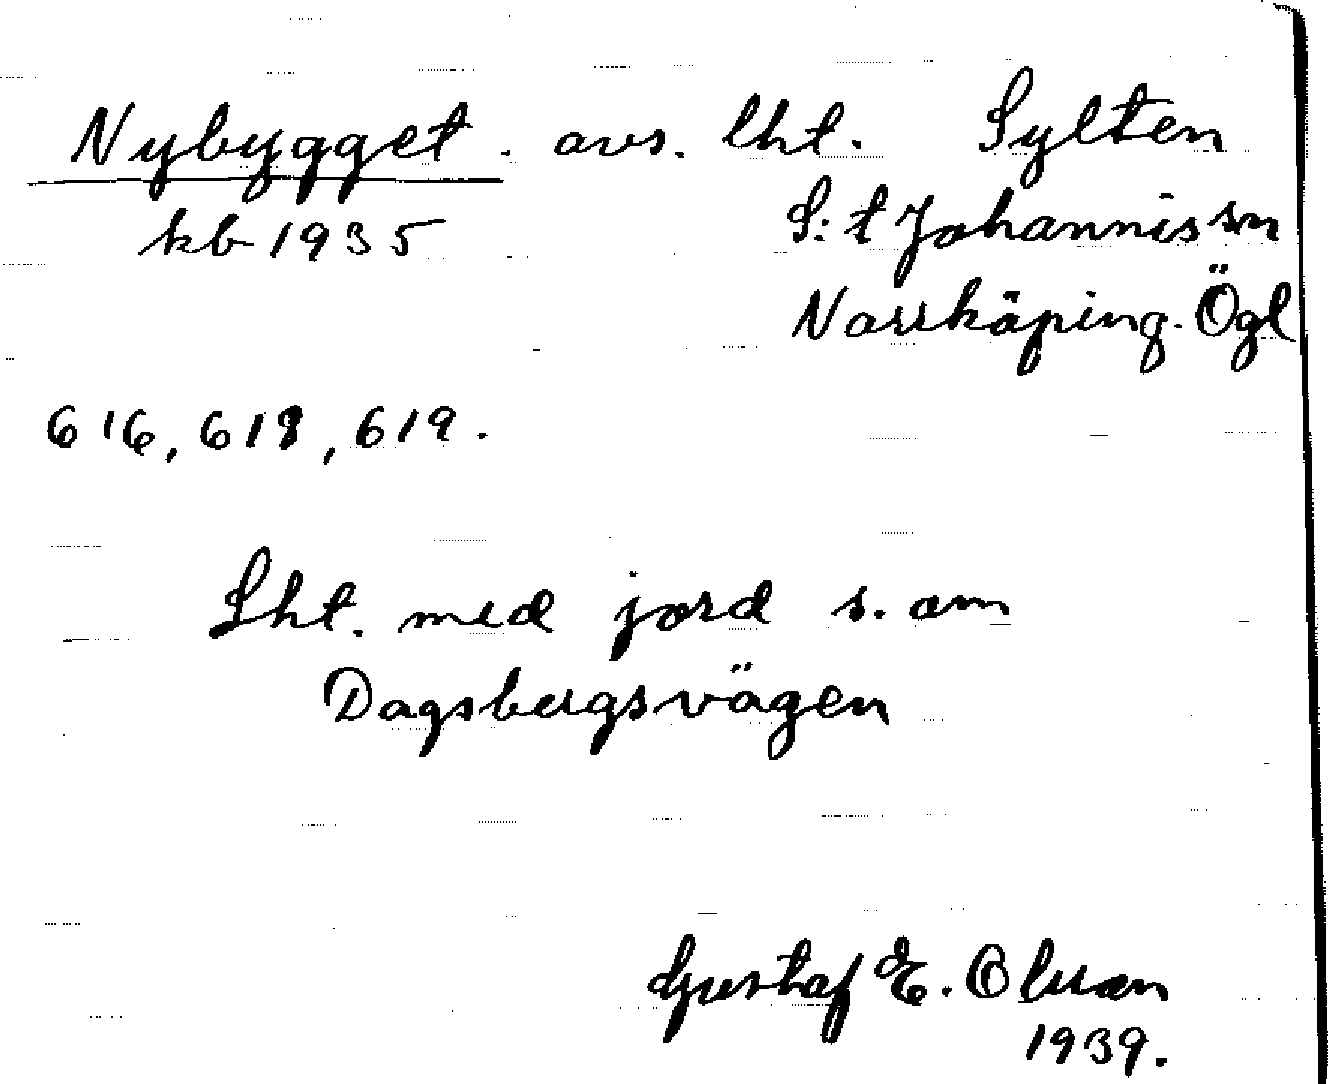 Nybygget. avs. lht. Sylten
kb 1935 S:t Johannis sn
Norrköping. Ögl
616, 618, 619.
Lht. med jord s. om
Dagsbergsvägen
Gustaf E. Olsson
1939.